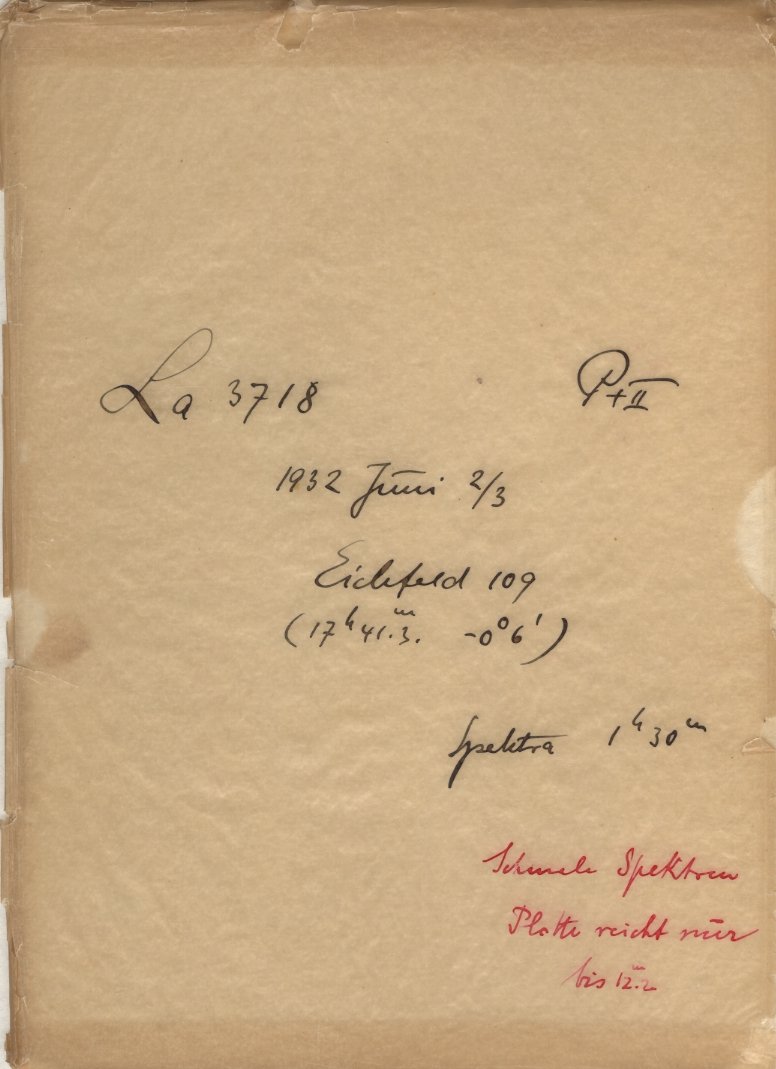 La 3718 P+II
1932 Juni 2/3
Eichfeld 109
(17ʰ41.ᵐ3. -0°6')
Spektra 1ʰ30ᵐ
Schmale Spektren
Platte reicht nur
bis 12.ᵐ2